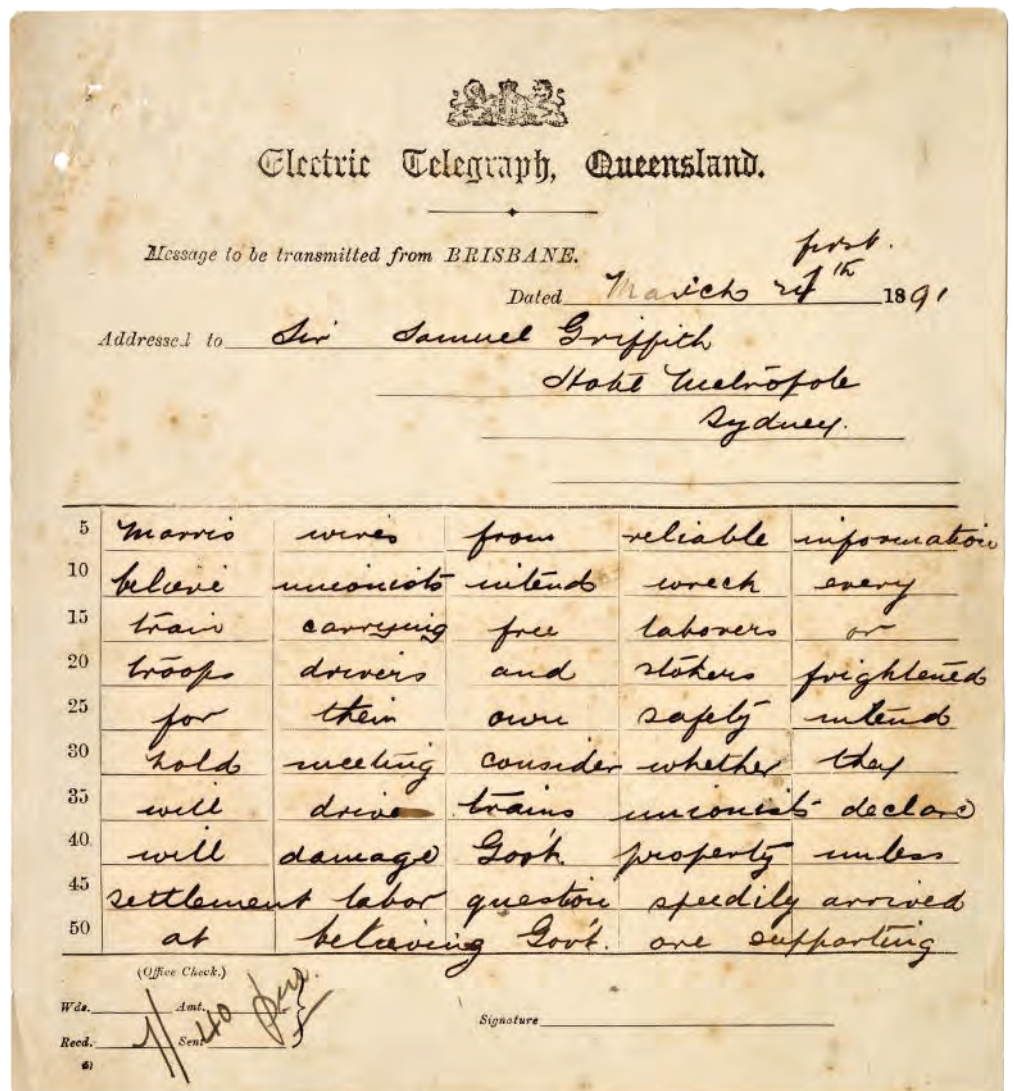 Electric Telegraph, Queensland.
Message to be transmitted from BRISBANE.
first.
Dated March 24th 1891
Addressed to Sir Samuel Griffith
Hotel Metropole
Sydney.
5 Morris wires from reliable information
10 believe unionists intend wreck every
15 train carrying free laborers or
20 troops drivers and stokers frightened
25 for their own safety intend
30 hold meeting consider whether they
35 will drive trains unionists declare
40 will damage Govt. property unless
45 settlement labor question speedily arrived
50 at believing Gov't. are supporting
(Office Check.)
Wds. Amt.
Signature
Recd. Sent